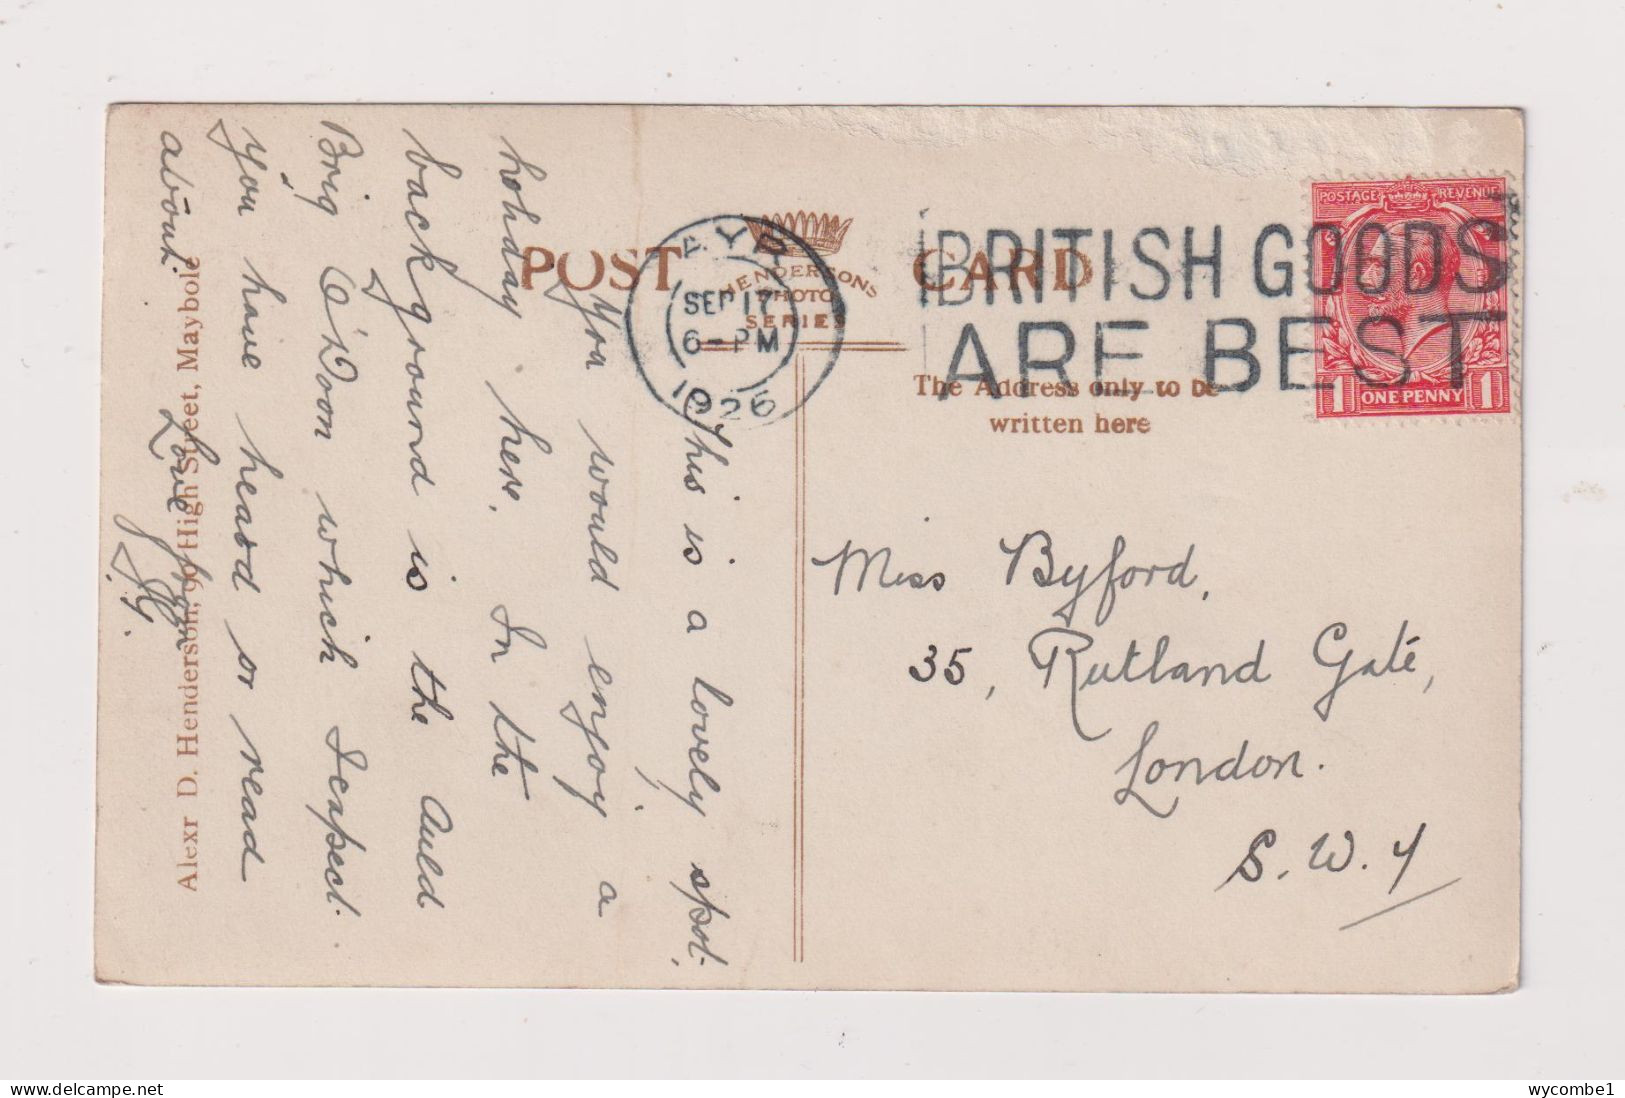 POST CARD
HENDERSONS
PHOTO
SERIES
The Address only to be
written here
AYR
SEP 17
6 - PM
1926
BRITISH GOODS
ARE BEST
POSTAGE REVENUE
1 ONE PENNY 1
This is a lovely spot.
You would enjoy a
hohday here. In the
background is the Auld
Brig O'Doon which I expect
you have heard or read
about.
Love from
Alexr D. Henderson, 90 High Street, Maybole
Miss Byford,
35, Rutland Gate,
London.
S.W.7
wycombe1